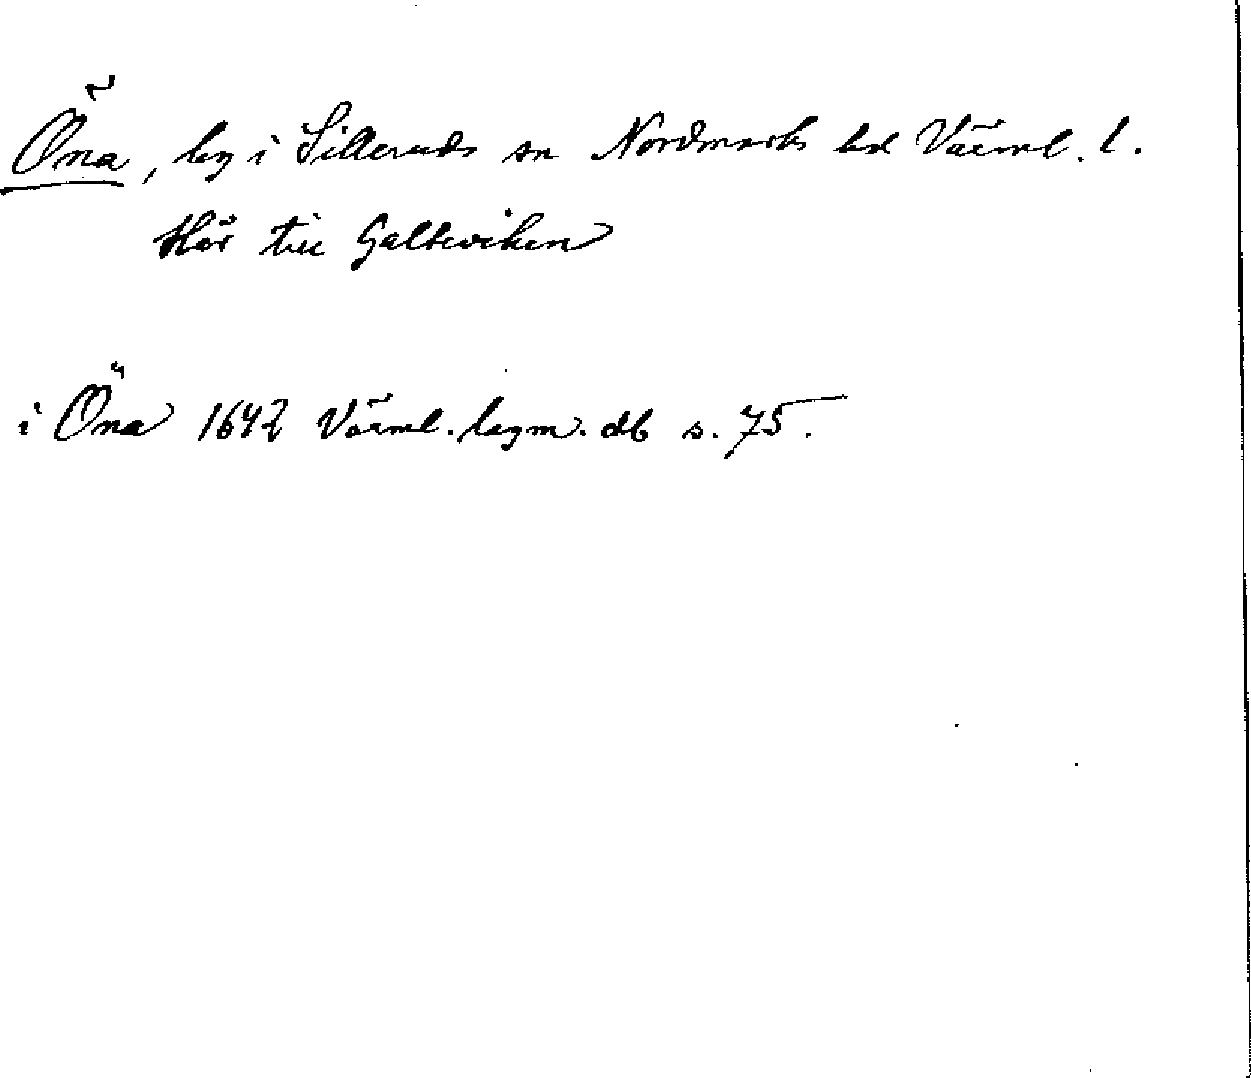 Öna, by i Silleruds sn Nordmarks hd Värml. l.
Hör till Galteviken
i Öna 1642 Värml. lagm. db s. 75.